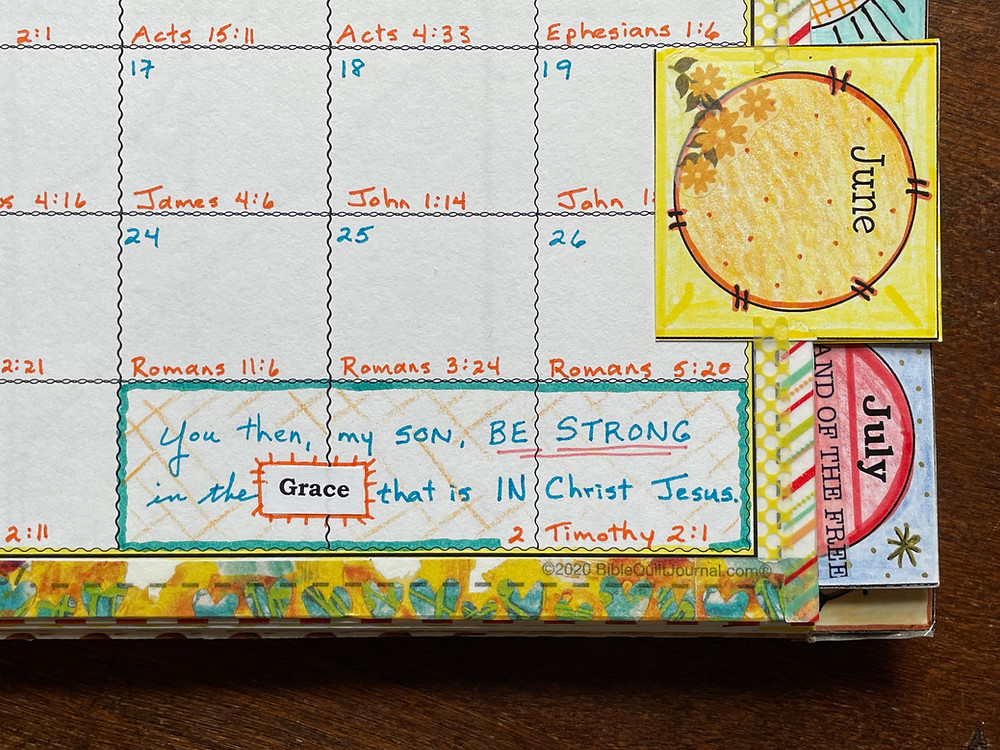 2:1 Acts 15:11 Acts 4:33 Ephesians 1:6
17 18 19
4:16 James 4:6 John 1:14 John
24 25 26
2:21 Romans 11:6 Romans 3:24 Romans 5:20
You then, my SON, BE STRONG
in the Grace that is IN Christ Jesus.
2:11 2 Timothy 2:1
©2020 BibleQuiltJournal.com®
June
July
AND OF THE FREE